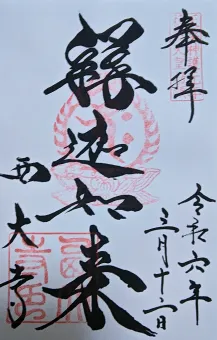 奉拝
釋迦如来
西大寺
令和六年
三月十二日